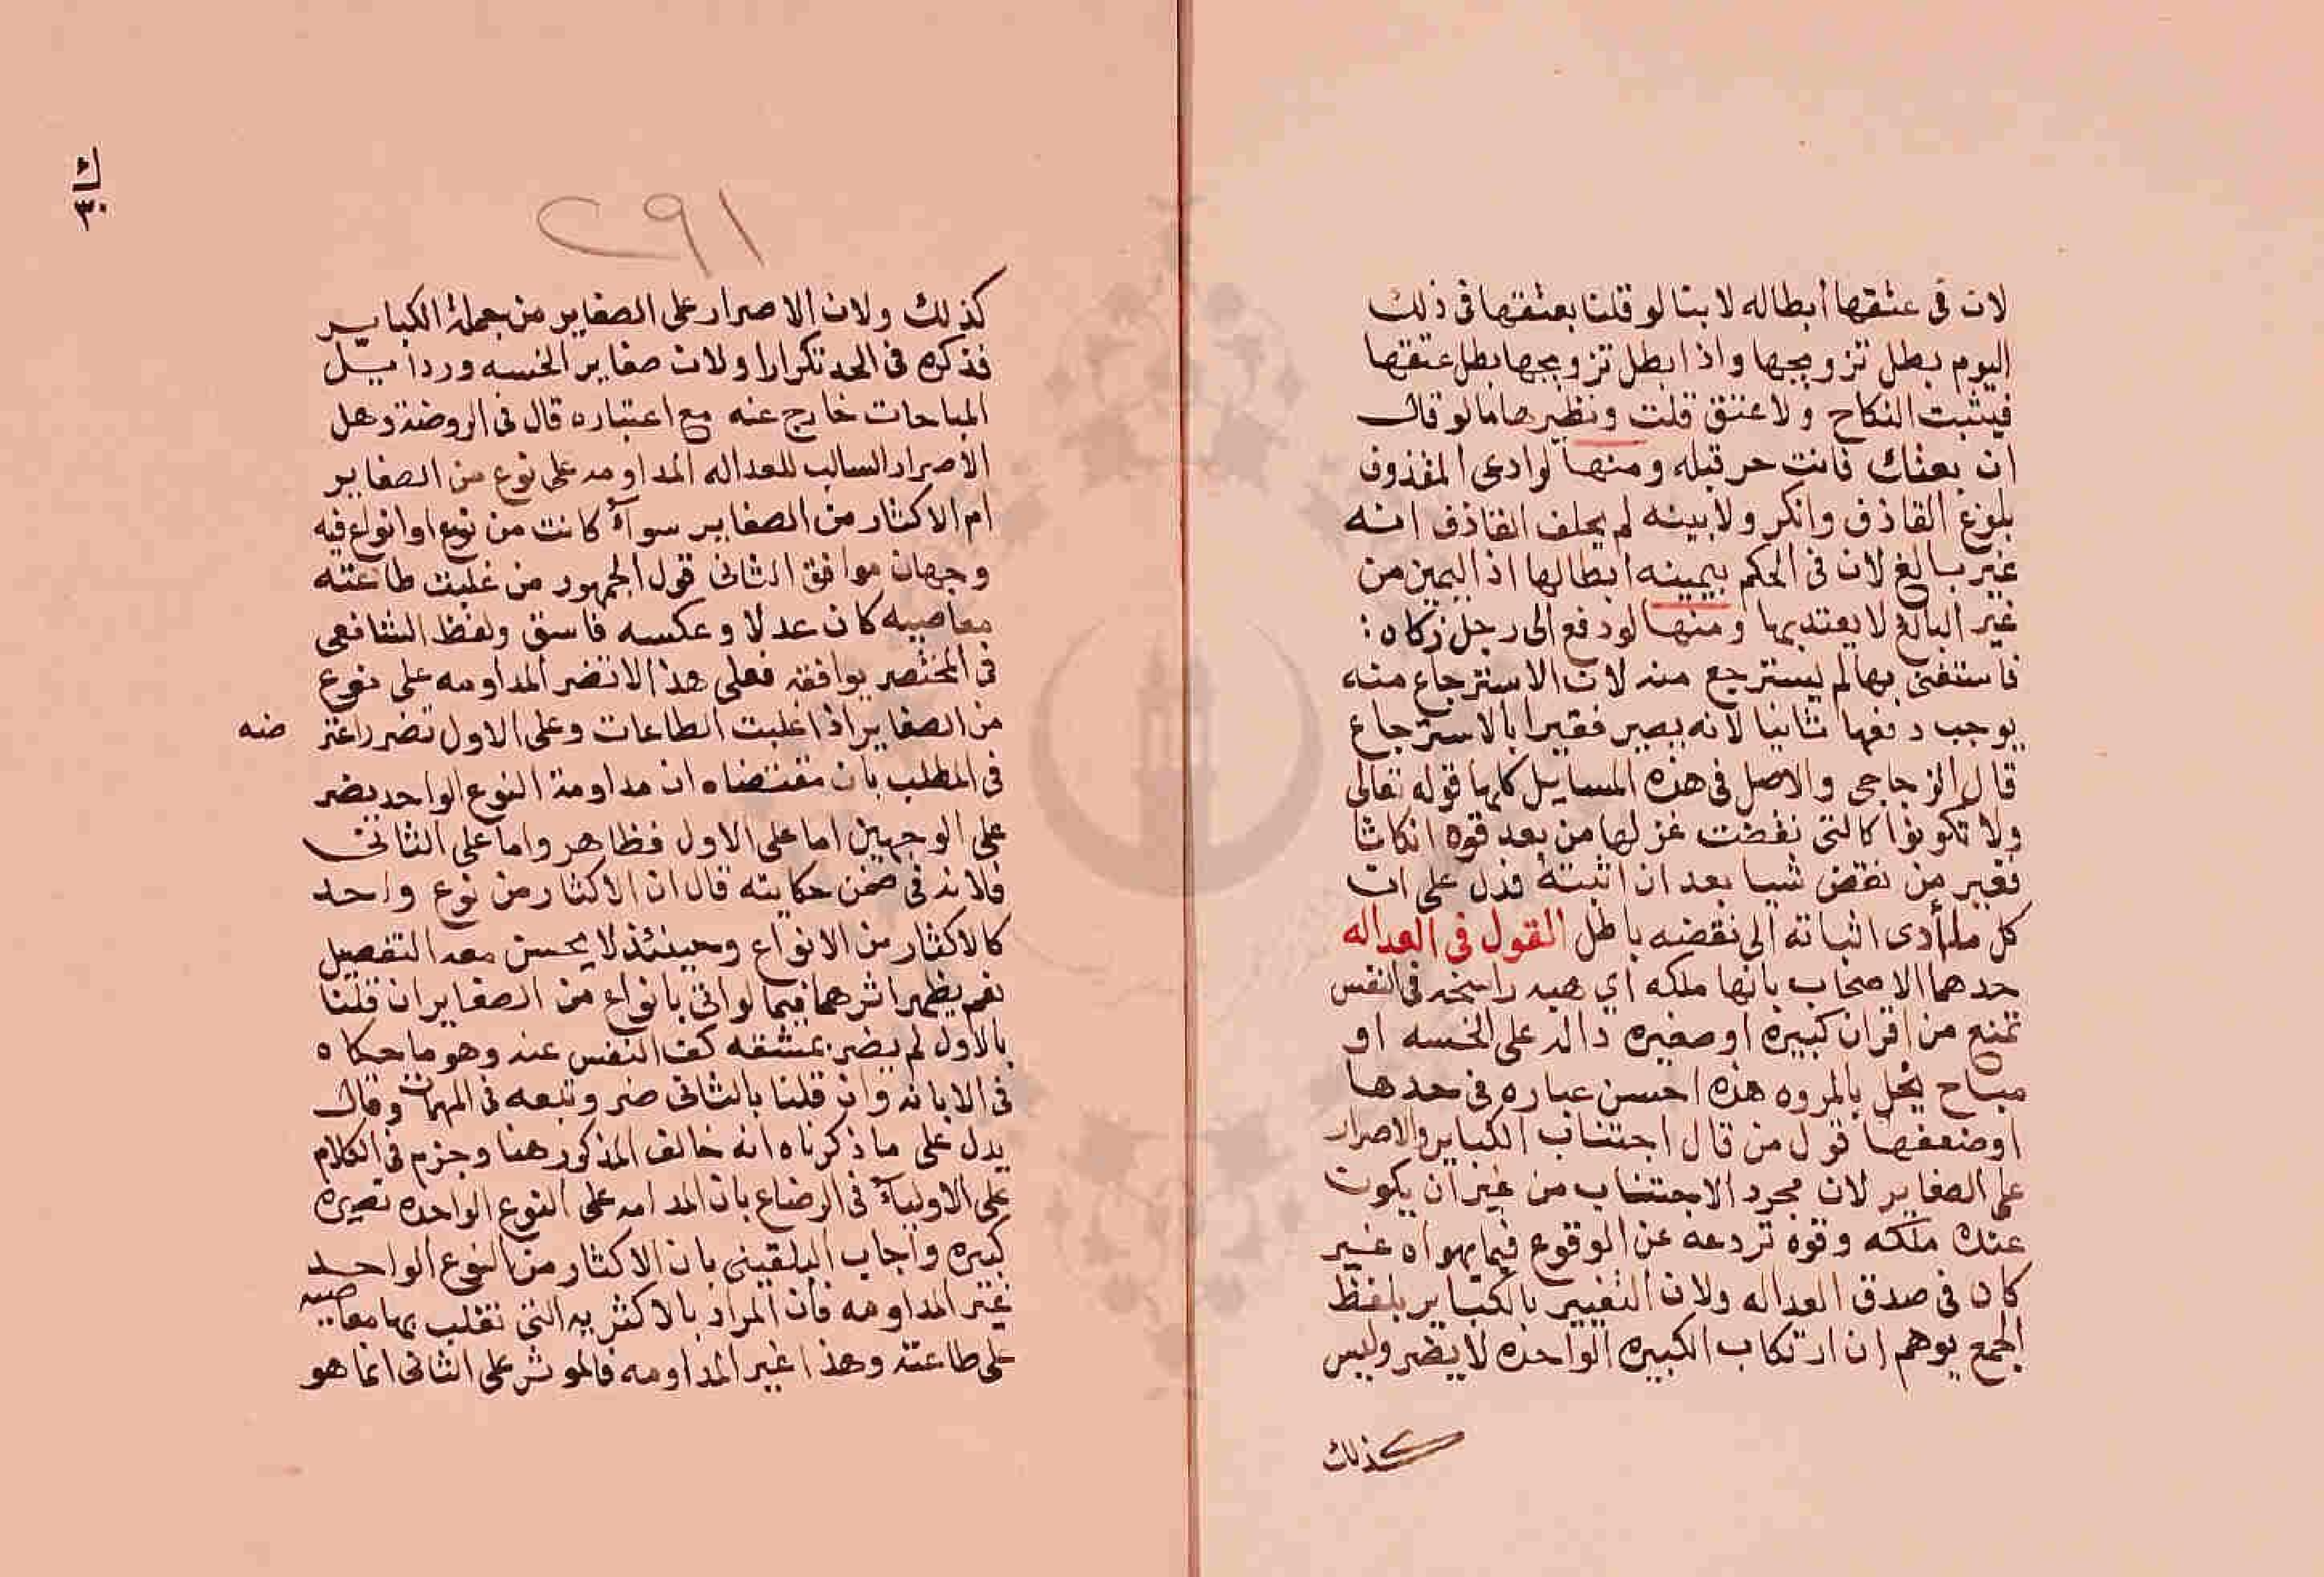 لان في عتقها أبطاله لابنا لو قلنا بعتقها في ذلك
اليوم بطل تزويجها واذا بطل تزويجها بطل عتقها
فيثبت النكاح ولا عتق قلت ونظيرها ما لو قال
ان بعتك فانت حر قبله ومنها لو ادعى المقذوف
بلوغ القاذف وانكر ولا بينه لم يحلف القاذف انه
غير بالغ لان في الحكم بيمينه ابطالها اذ اليمين من
غير البالغ لا يعتد بها ومنها لو دفع الى رجل زكاه
فاستغنى بها لم يسترجع منه لان الاسترجاع منه
يوجب دفعها ثانيا لانه يصير فقيرا بالاسترجاع
قال الزجاجي والاصل في هذه المسايل كلها قوله تعالى
ولا تكونوا كالتي نقضت غزلها من بعد قوه انكاثا
فعير من نقض شيا بعد ان اثبته فدل على ان
كل ما أدى اثباته الى نقضه باطل القول في العداله
حدها الاصحاب بانها ملكه اي هيه راسخه في النفس
تمنع من اقران كبيره او صغيره داله على الخسه او
مباح يخل بالمروه هذه احسن عباره في حدها
اوضعفها قول من قال اجتناب الكباير والاصرار
على الصغاير لان مجرد الاجتناب من غير ان يكون
عنك ملكه وقوه تردعه عن الوقوع فيما يهواه غير
كان في صدق العداله ولان التعبير بالكباير بلفظ
الجمع يوهم ان ارتكاب الكبيره الواحده لا يضر وليس
كذلك
٢٩١
ك
٣٠
كذلك ولان الاصرار على الصغاير من جملة الكباير
فذكره في الحد تكرارا ولان صغاير الخسه وردايل
المباحات خارج عنه مع اعتباره قال في الروضة وهل
الاصرار السالب للعداله المداومه على نوع من الصغاير
ام الاكثار من الصغاير سوآء كانت من نوع او انواع فيه
وجهان موافق الثاني قول الجمهور من غلبت طاعته
معاصيه كان عدلا وعكسه فاسق ولفظ الشافعي
في المختصر يوافقه فعلى هذا لا تضر المداومه على نوع
من الصغاير اذا غلبت الطاعات وعلى الاول تضر واعتر ضه
في المطلب بان مقتضاه ان مداومة النوع الواحد يضر
على الوجهين اما على الاول فظاهر واما على الثاني
فلانه في ضمن حكايته قال ان الاكثار من نوع واحد
كالاكثار من الانواع وحينئذ لا يحسن معه التفصيل
نعم يظهر اثرهما فيما لو اتى بانواع من الصغاير ان قلنا
بالاول لم يضر كف النفس عنه وهو ما حكاه
في الابانه وان قلنا بالثاني ضر وتبعه في المهمات وقال
يدل على ما ذكرناه انه خالف المذكور هنا وجزم في الكلام
على الاوليآء في الرضاع بان المدامه على النوع الواحده تصيره
كبيره واجاب البلقيني بان الاكثار من النوع الواحد
غير المداومه فان المراد بالاكثريه التي تغلب بها معاصيه
على طاعته وهذا غير المداومه فالموثر على الثاني انما هو